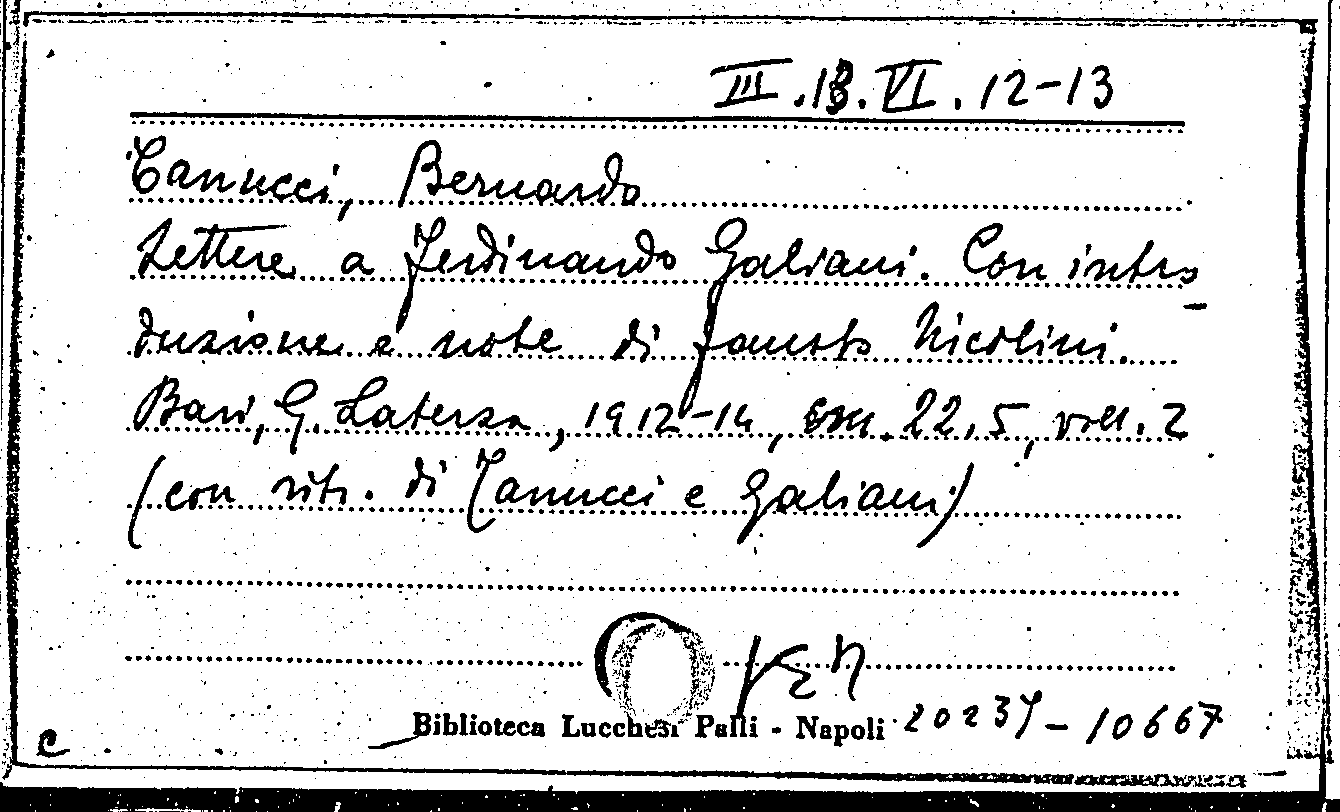 III.13.VI.12-13
Tanucci, Bernardo
Lettere a Ferdinando Galiani. Con intro_
duzione e note di Fausto Nicolini.
Bari, G. Laterza, 1912-14, cm. 22,5, voll. 2
(con ritr. di Tanucci e Galiani)
Biblioteca Lucchesi Palli - Napoli
-10667
C